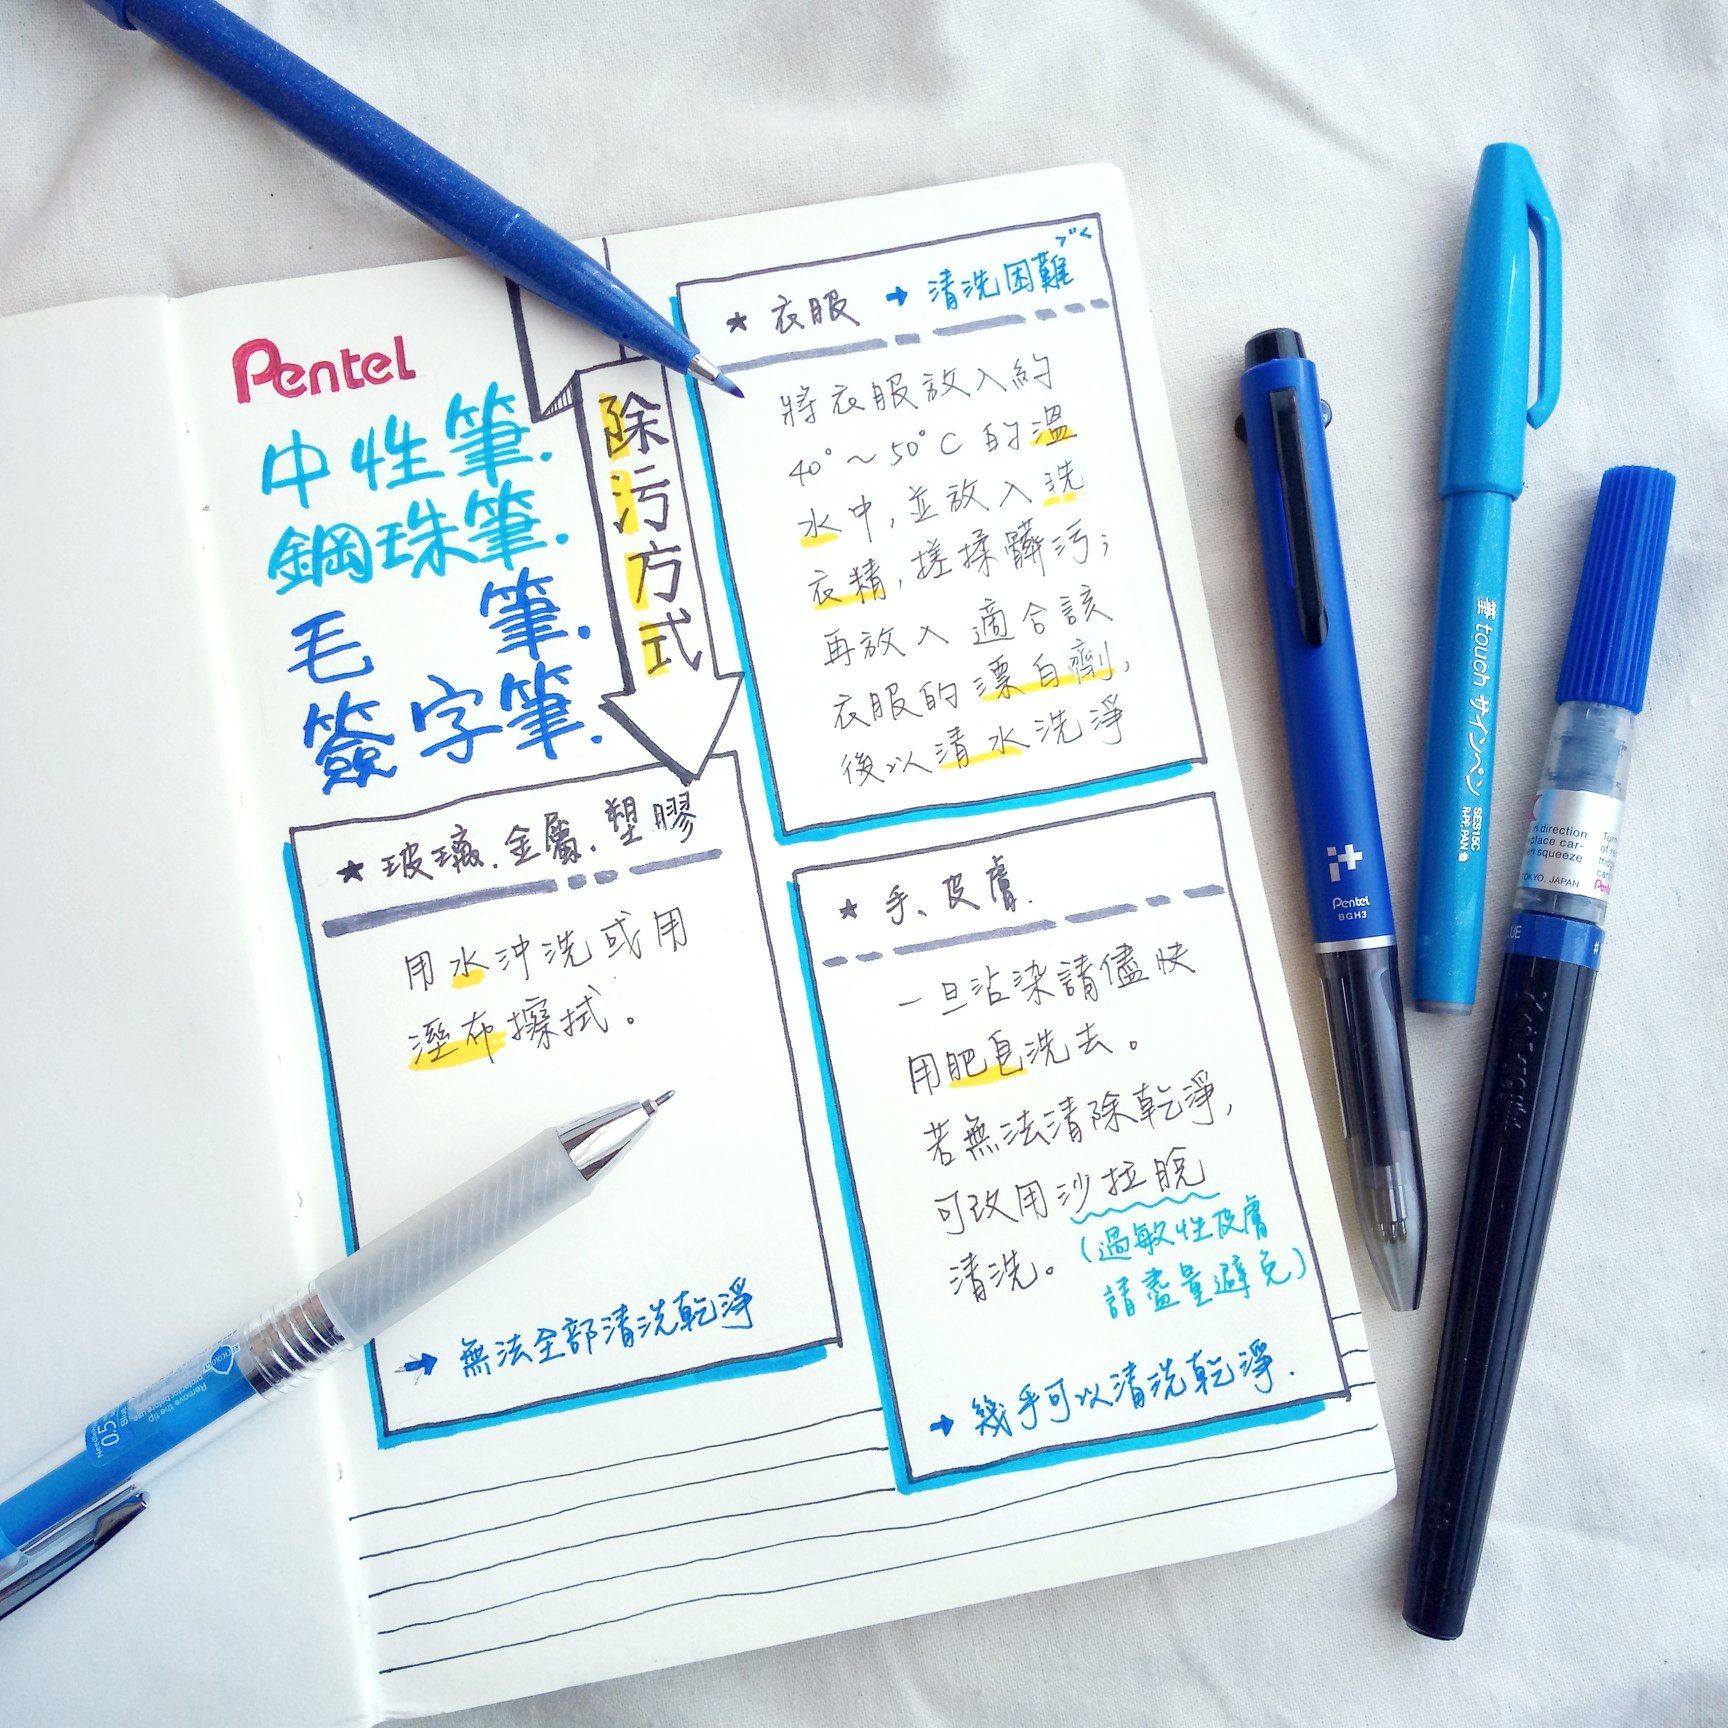 Pentel
中性筆.
鋼珠筆.
毛 筆.
簽字筆.
除污方式
★ 衣服 → 清洗困難
將衣服放入約
40°~50°C 的溫
水中,並放入洗
衣精,搓揉髒污;
再放入適合該
衣服的漂白劑,
後以清水洗淨
★ 玻璃.金屬.塑膠
用水沖洗或用
溼布擦拭。
→ 無法全部清洗乾淨
★ 手、皮膚.
一旦沾染請儘快
用肥皂洗去。
若無法清除乾淨,
可改用沙拉脫
清洗。
(過敏性皮膚
請盡量避免)
→ 幾乎可以清洗乾淨.
it
Pentel
BGH3
筆touch サインペン
SES15C
in direction
place car-
en squeeze
TOKYO, JAPAN
Turn
of re
Pente
Remove the tip
0.5